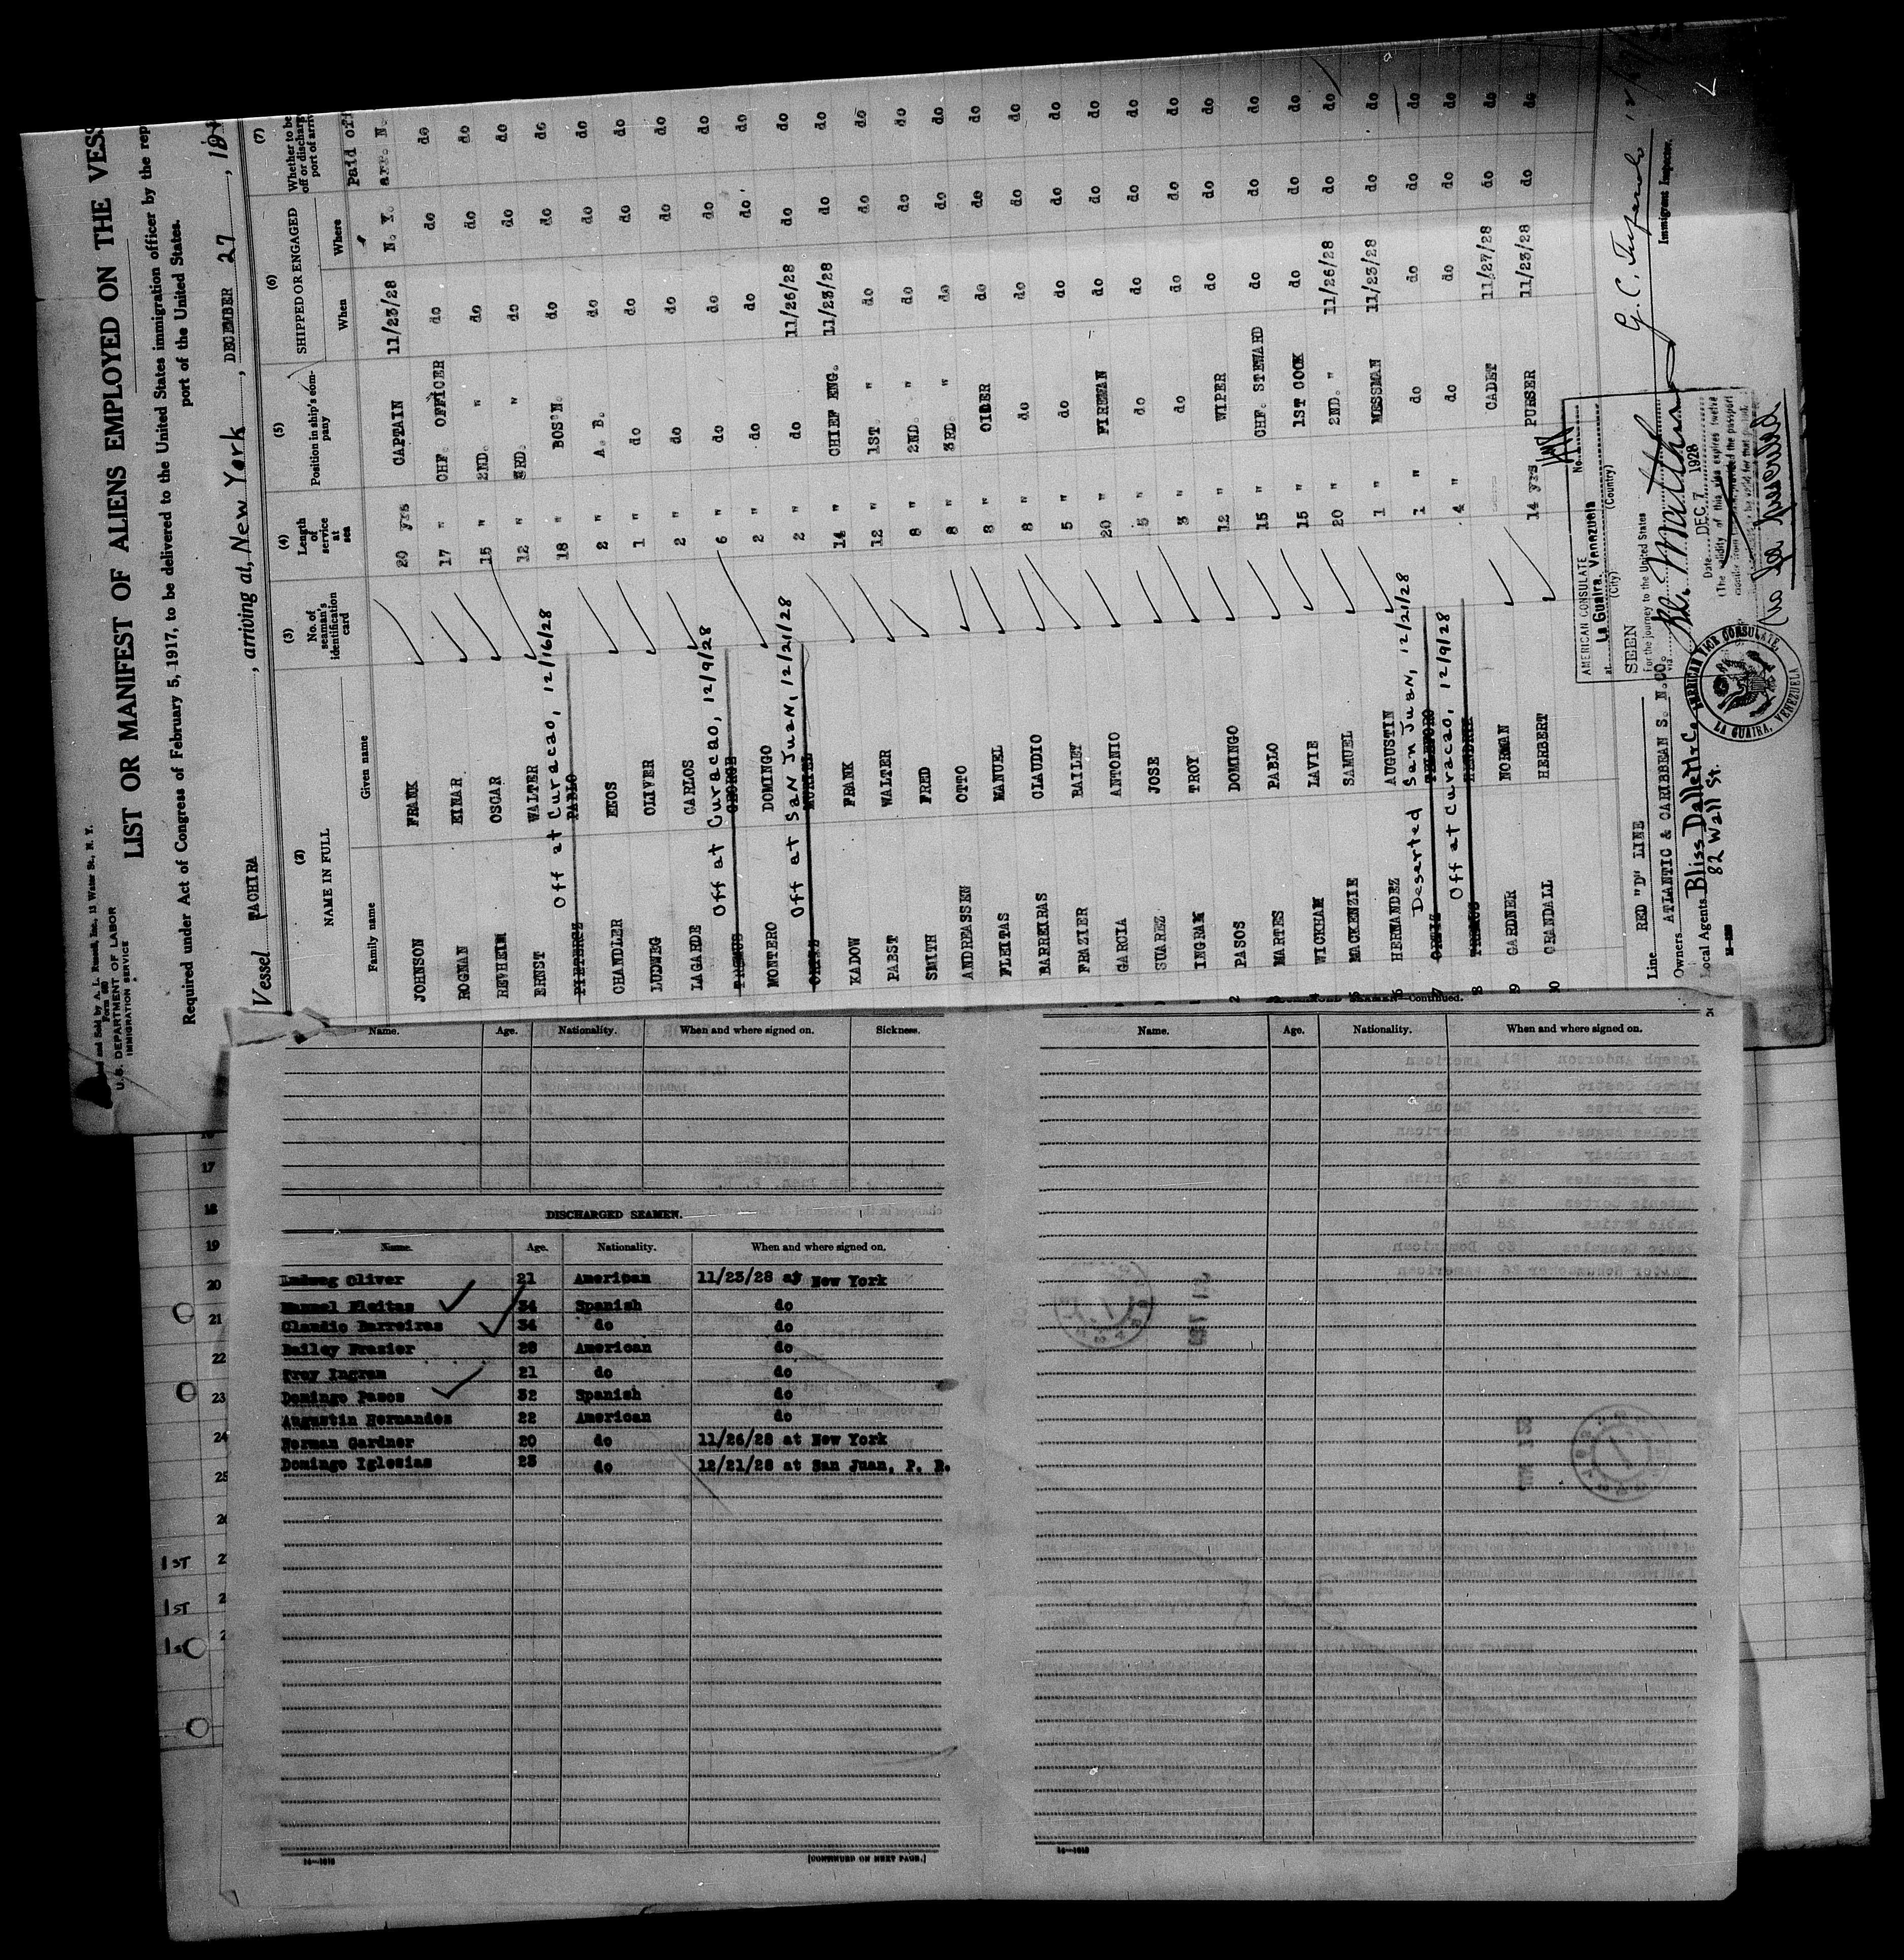 and Sold by A. L. Russell, Inc., 12 Water St., N. Y.
Form 680
U. S. DEPARTMENT OF LABOR
IMMIGRATION SERVICE
LIST OR MANIFEST OF ALIENS EMPLOYED ON THE VESS
Required under Act of Congress of February 5, 1917, to be delivered to the United States immigration officer by the rep
port of the United States.
Vessel TACHIRA, arriving at, New York, DECEMBER 27, 192
(2) (3) (4) (5) (6) (7)
NAME IN FULL No. of seaman's identification card Length of service at sea Position in ship's company SHIPPED OR ENGAGED Whether to be
off or discharg
port of arriv
Family name Given name When Where
Paid off
JOHNSON FRANK 20 yrs CAPTAIN 11/23/28 N. Y. arr. N.
ROGNAN EINAR 17 " CHF. OFFICER do do do
REVHEIM OSCAR 15 " 2ND. " do do do
ERNST WALTER 12 " 3RD. " do do do
Off at Curacao, 12/16/28
PIETERSZ PABLO 18 " BOS'N. do do do
CHANDLER ENOS 2 " A. B. do do do
LUDWEG OLIVER 1 " do do do do
LAGARDE CARLOS 2 " do do do do
Off at Curacao, 12/9/28
GEORGE 6 " do do do do
MONTERO DOMINGO 2 " do do do do
Off at San Juan, 12/21/28
2 " do 11/26/28 do do
KADOW FRANK 14 " CHIEF ENG. 11/23/28 do do
PABST WALTER 12 " 1ST. " do do do
SMITH FRED 8 " 2ND. " do do do
ANDREASSEN OTTO 8 " 3RD. " do do do
FLEITAS MANUEL 8 " OILER do do do
BARREIRAS CLAUDIO 8 " do do do do
FRAZIER BAILEY 5 " do do do do
GARCIA ANTONIO 20 " FIREMAN do do do
SUAREZ JOSE 5 " do do do do
INGRAM TROY 3 " do do do do
PASOS DOMINGO 12 " WIPER do do do
MARTES PABLO 15 " CHF. STEWARD do do do
WICKHAM LAVIE 15 " 1ST COOK do do do
MACKENZIE SAMUEL 20 " 2ND. " 11/26/28 do do
HERNANDEZ AUGUSTIN 1 " MESSMAN 11/23/28 do do
Deserted San Juan, 12/21/28
ORTIZ TELESFORO 1 " do do do do
Off at Curacao, 12/9/28
4 " do do do do
GARDNER NORMAN CADET 11/27/28 do do
CRANDALL HERBERT 14 yrs PURSER 11/23/28 do do
Line RED "D" LINE
Owners ATLANTIC & CARIBBEAN S. N. CO.
Local Agents Bliss Dallett & Co
82 Wall St.
AMERICAN CONSULATE No.
at La Guaira, Venezuela
(City) (Country)
SEEN
For the journey to the United States
via
Date DEC. 7 1928
(The validity of this visa expires twelve
No fee prescribed
AMERICAN VICE CONSULATE
LA GUAIRA, VENEZUELA
Immigrant Inspector.
Continued.
Name. Age. Nationality. When and where signed on. Sickness.
DISCHARGED SEAMEN.
Name. Age. Nationality. When and where signed on.
Ludweg Oliver 21 American 11/23/28 at New York
Manuel Fleitas 34 Spanish do
Claudio Barreiras 34 do do
Bailey Frazier 28 American do
Troy Ingram 21 do do
Domingo Pasos 32 Spanish do
Augustin Hernandez 22 American do
Norman Gardner 20 do 11/26/28 at New York
Domingo Iglesias 23 do 12/21/28 at San Juan, P. R.
[CONTINUED ON NEXT PAGE.]
Name. Age. Nationality. When and where signed on.
17
18
19
20
21
22
23
24
25
1ST
1ST
1ST